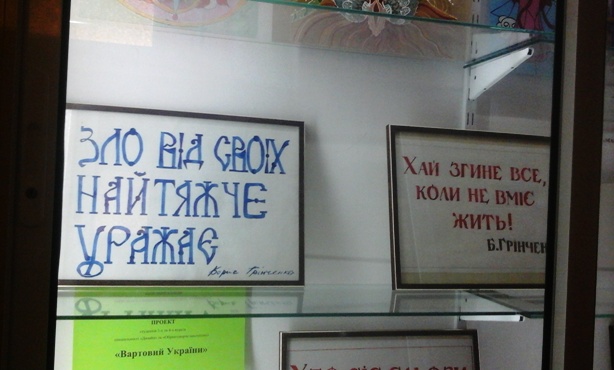 ЗЛО ВІД СВОЇХ
НАЙТЯЖЧЕ
УРАЖАЄ
Борис Грінченко
ХАЙ ЗГИНЕ ВСЕ,
КОЛИ НЕ ВМІЄ
ЖИТЬ!
Б.ГРІНЧЕН
ПРОЕКТ
«Вартовий України»